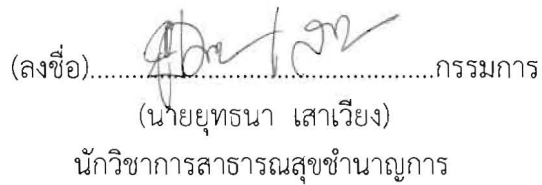 (ลงชื่อ)................................................กรรมการ
(นายยุทธนา เสาเวียง)
นักวิชาการสาธารณสุขชำนาญการ